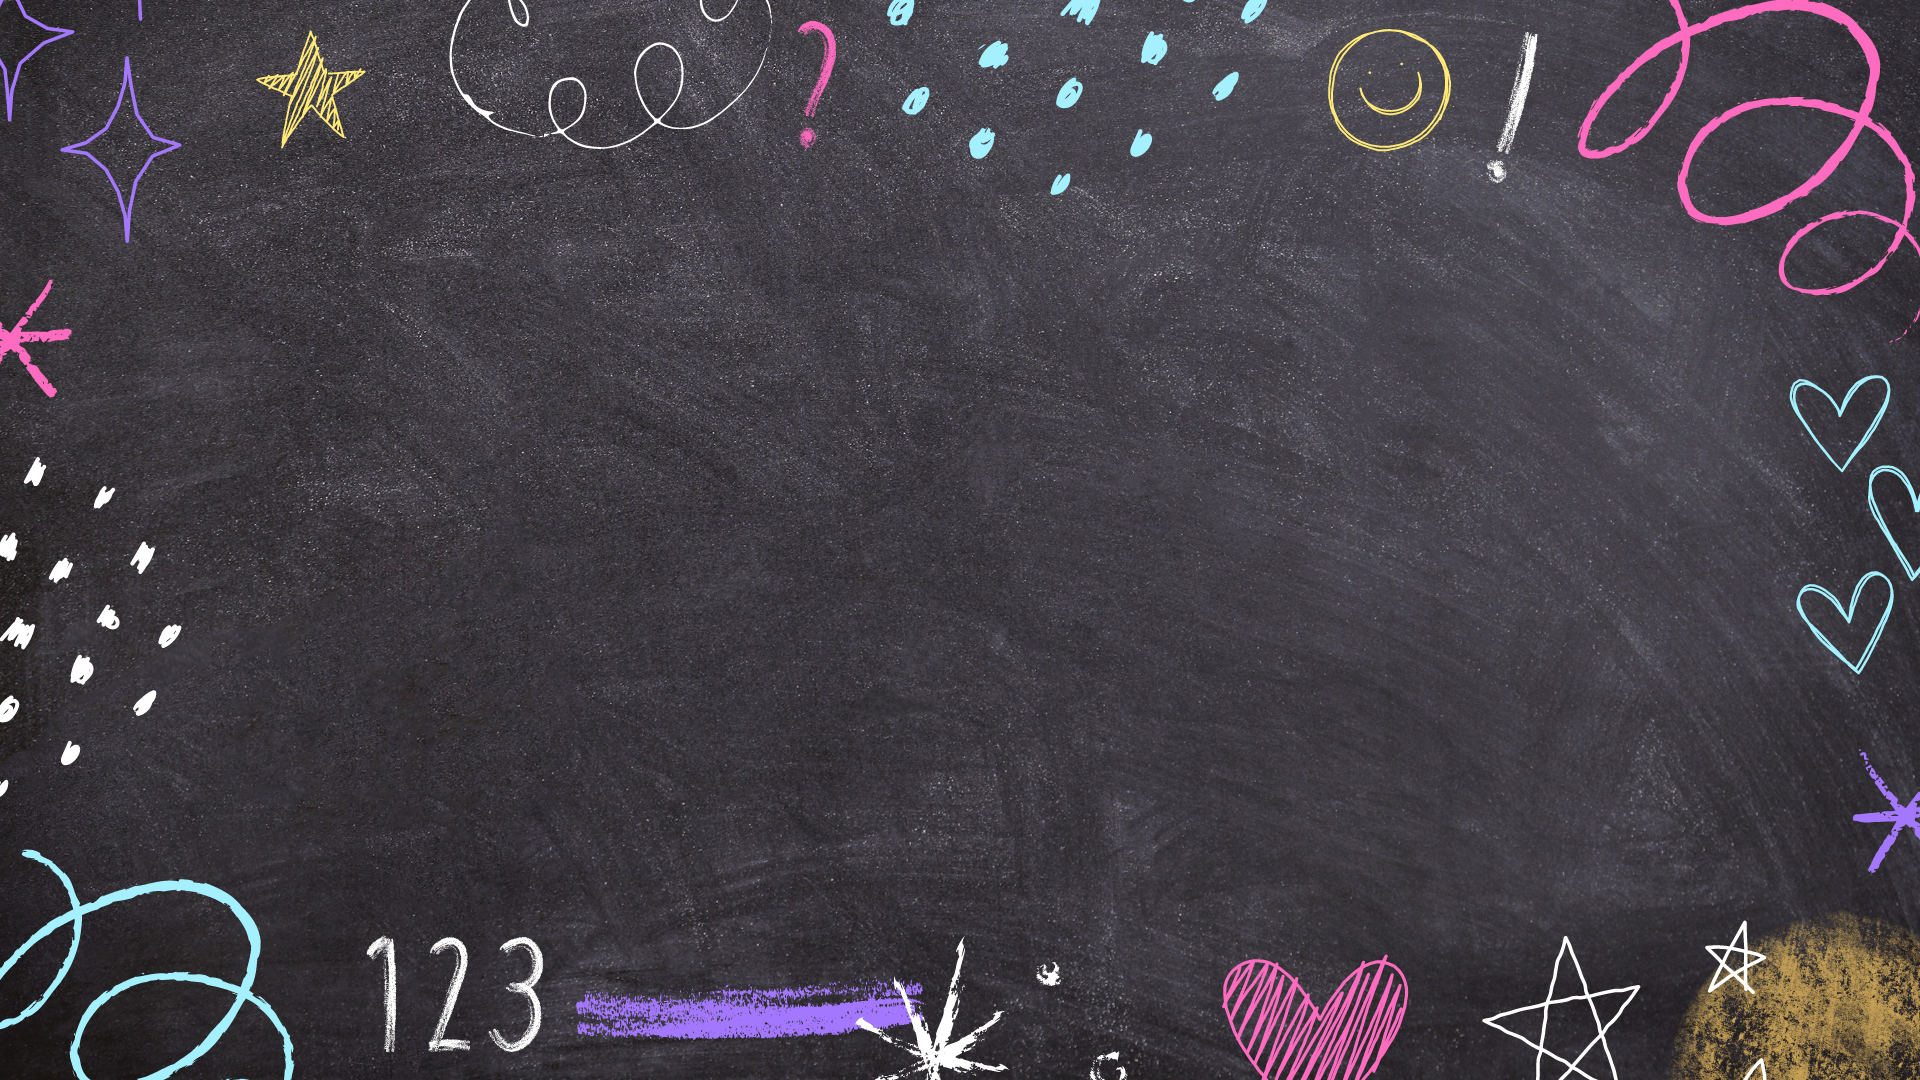 ?
!
123